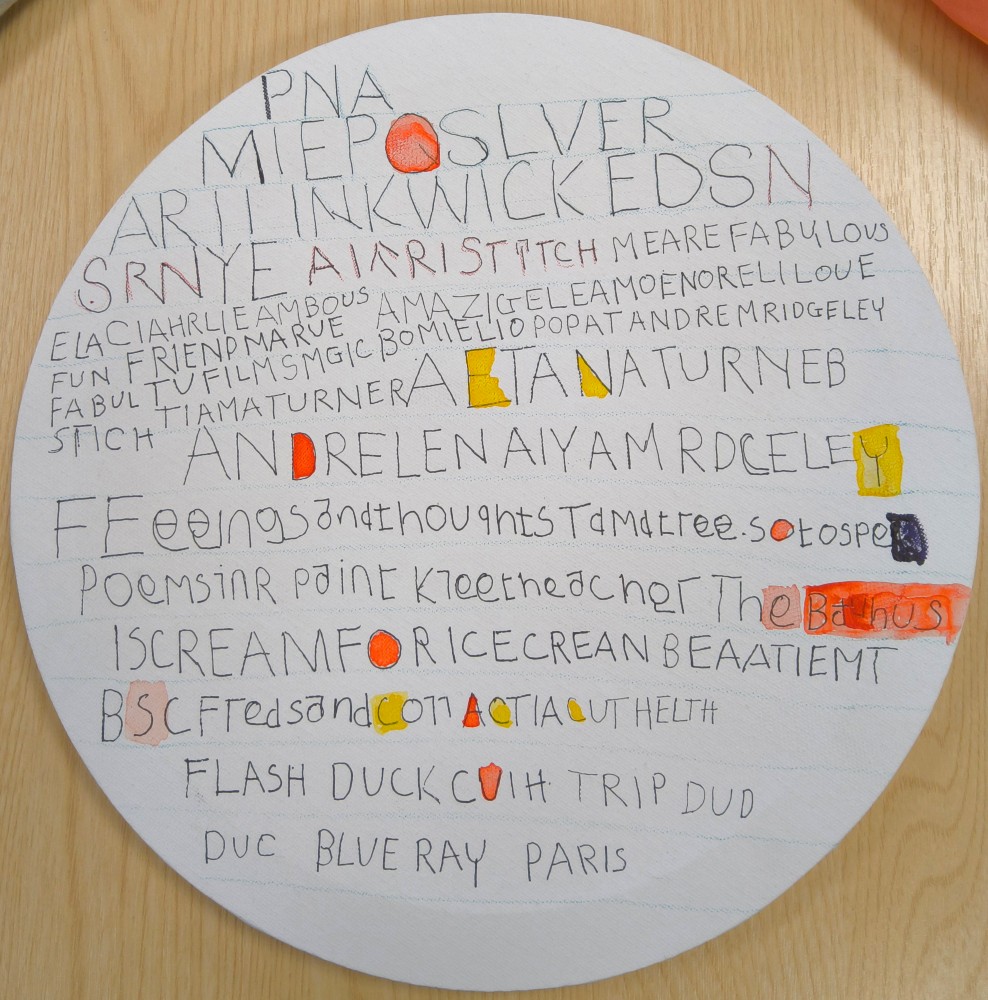 PNA
MIEPOSLVER
ARTLINKWICKEDSN
SRNYE AIARISTITCH MEAREFABULOUS
ELACIAHRLIEAMBOUS AMAZIGELEAMOENORELILOUE
FUN FRIENPMARUE BOMIELIOPOPATANDREMRIDGELEY
FABUL TUFILMSMGIC AETANATURNEB
STICH TIAMATURNER
ANDRELENAIYAMRDGELEY
FEeeingsandthoughtsTamatree.sotospe
Poemsinr paint kleetheacher The Bauhus
ISCREAMFORICECREANBEAATIEMT
BSCFredsandconACTIACUTHELTH
FLASH DUCK CUIH TRIP DUD
DUC BLUERAY PARIS